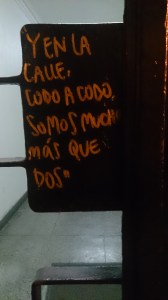 Y EN LA
CALLE,
CODO A CODO,
SOMOS MUCH
MÁS QUE
DOS"